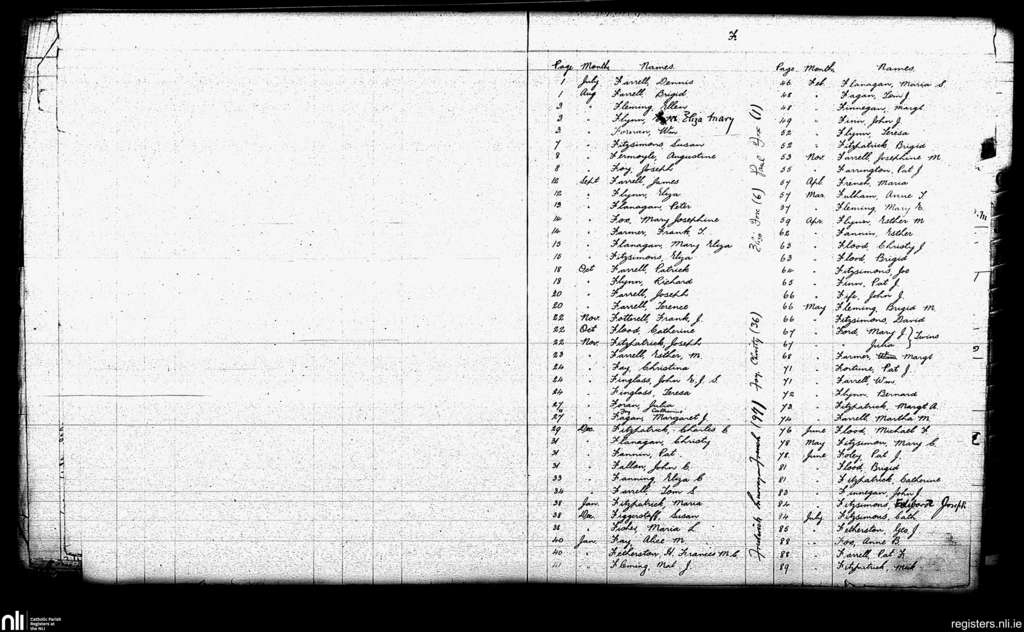 F.
Page Month Names
1 July Farrell, Dennis
1 Aug Farrell, Brigid
3 " Fleming, Ellen
3 " Flynn, Eliza Mary
3 " Foreman, Wm
7 " Fitzsimons, Susan
8 " Fermoyle, Augustine
8 " Foy, Joseph
12 Sept Farrell, James
12 " Flynn, Eliza
13 " Flanagan, Peter
14 " Fox, Mary Josephine
14 " Farmer, Frank T.
15 " Flanagan, Mary Eliza
15 " Fitzsimons, Eliza
18 Oct Farrell, Patrick
18 " Flynn, Richard
20 " Farrell, Joseph
20 " Farrell, Terence
22 Nov. Fottrell, Frank J.
22 Oct Flood, Catherine
22 Nov. Fitzpatrick, Joseph
23 " Farrell, Esther, M.
24 " Fay, Christina
24 " Finglass, John E. J. S.
24 " Finglass, Teresa
27 " Foran, Julia
Foy Catherine
27 " Fagan, Margaret J.
29 Dec Fitzpatrick, Charles C
31 " Flanagan, Christy
31 " Fannin, Pat.
31 " Fallon, John C.
33 " Fanning, Eliza C
34 " Farrell, Tom S
38 Jan. Fitzpatrick, Maria
38 Dec. Figgerstoff, Susan
38 " Fisher, Maria L
40 Jan. Fay, Alice M.
40 " Fetherston, H. Frances M. C
41 " Fleming, Mat J.
Eliza Fox (6) Paul Fox (1)
Foy, Christy (26)
Frederick French (99)
Page. Month Names.
46 Feb. Flanagan, Maria S
48 " Fagan, Tom J
48 " Finnegan, Margt
49 " Finn, John J.
52 " Flynn, Teresa
52 " Fitzpatrick, Brigid
53 Nov. Farrell, Josephine M
55 " Farrington, Pat J
57 Apl. French, Maria
57 Mar. Fulham, Anne T.
57 " Fleming, Mary E.
59 Apr. Flynn, Esther M
62 " Fannin, Esther
63 " Flood, Christy J
63 " Flood, Brigid
64 " Fitzsimons, Jos
65 " Finn, Pat J.
66 " Fife, John J.
66 May Fleming, Brigid M.
66 " Fitzsimons, David
67 " Ford, Mary J. } Twins
67 " " Julia
68 " Farmer, Margt
71 " Fortune, Pat J.
71 " Farrell, Wm
72 " Flynn, Bernard
73 " Fitzpatrick, Margt A.
74 " Farrell, Martha M.
76 June Flood, Michael F
78 May Fitzsimon, Mary C.
78 June Foley, Pat J.
81 " Flood, Brigid
81 " Fitzpatrick, Catherine
83 " Finnegan, John J.
84 " Fitzsimons, Edward Joseph.
84 July Fitzsimons, Cath
85 " Fetherston, Geo J
88 " Fox, Anne B.
88 " Farrell, Pat F.
89 " Fitzpatrick, Mich
nli Catholic Parish
Registers at
the NLI
registers.nli.ie